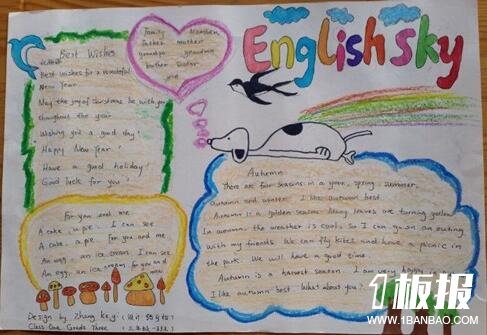 English sky
Best Wishes
Best wishes for a wonderful
New Year.
May the joy of christmas be with you
throughout the year.
Wishing you a good day!
Happy New Year!
Have a good holiday!
Good luck for you!
Family Members
father mother
grandpa grandma
brother sister
me
For you and me
A cake, a pie. I can see
A cake, a pie. For you and me.
An egg, an ice cream. I can see
An egg, an ice cream, for you and
Autumn
There are four seasons in a year, spring, summer,
Autumn and winter. I like autumn best.
Autumn is a golden season. Many leaves are turning yellow
In autumn, the weather is cool, so I can go on outing
with my friends. We can fly kites and have a picnic in
the park. We will have a good time.
Autumn is a harvest season. I am very happy in
I like autumn best. What about you?
Design by Zhang Ke yi
Class One, Grade Three
板报
WWW.1BANBAO.COM